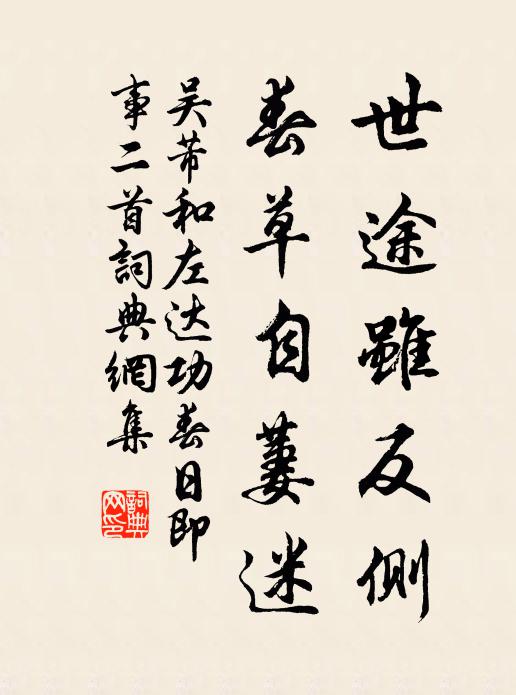 世途雖反側
春草自萋迷
吴芾和左达功春日即
事二首詞典網集
詞典网印